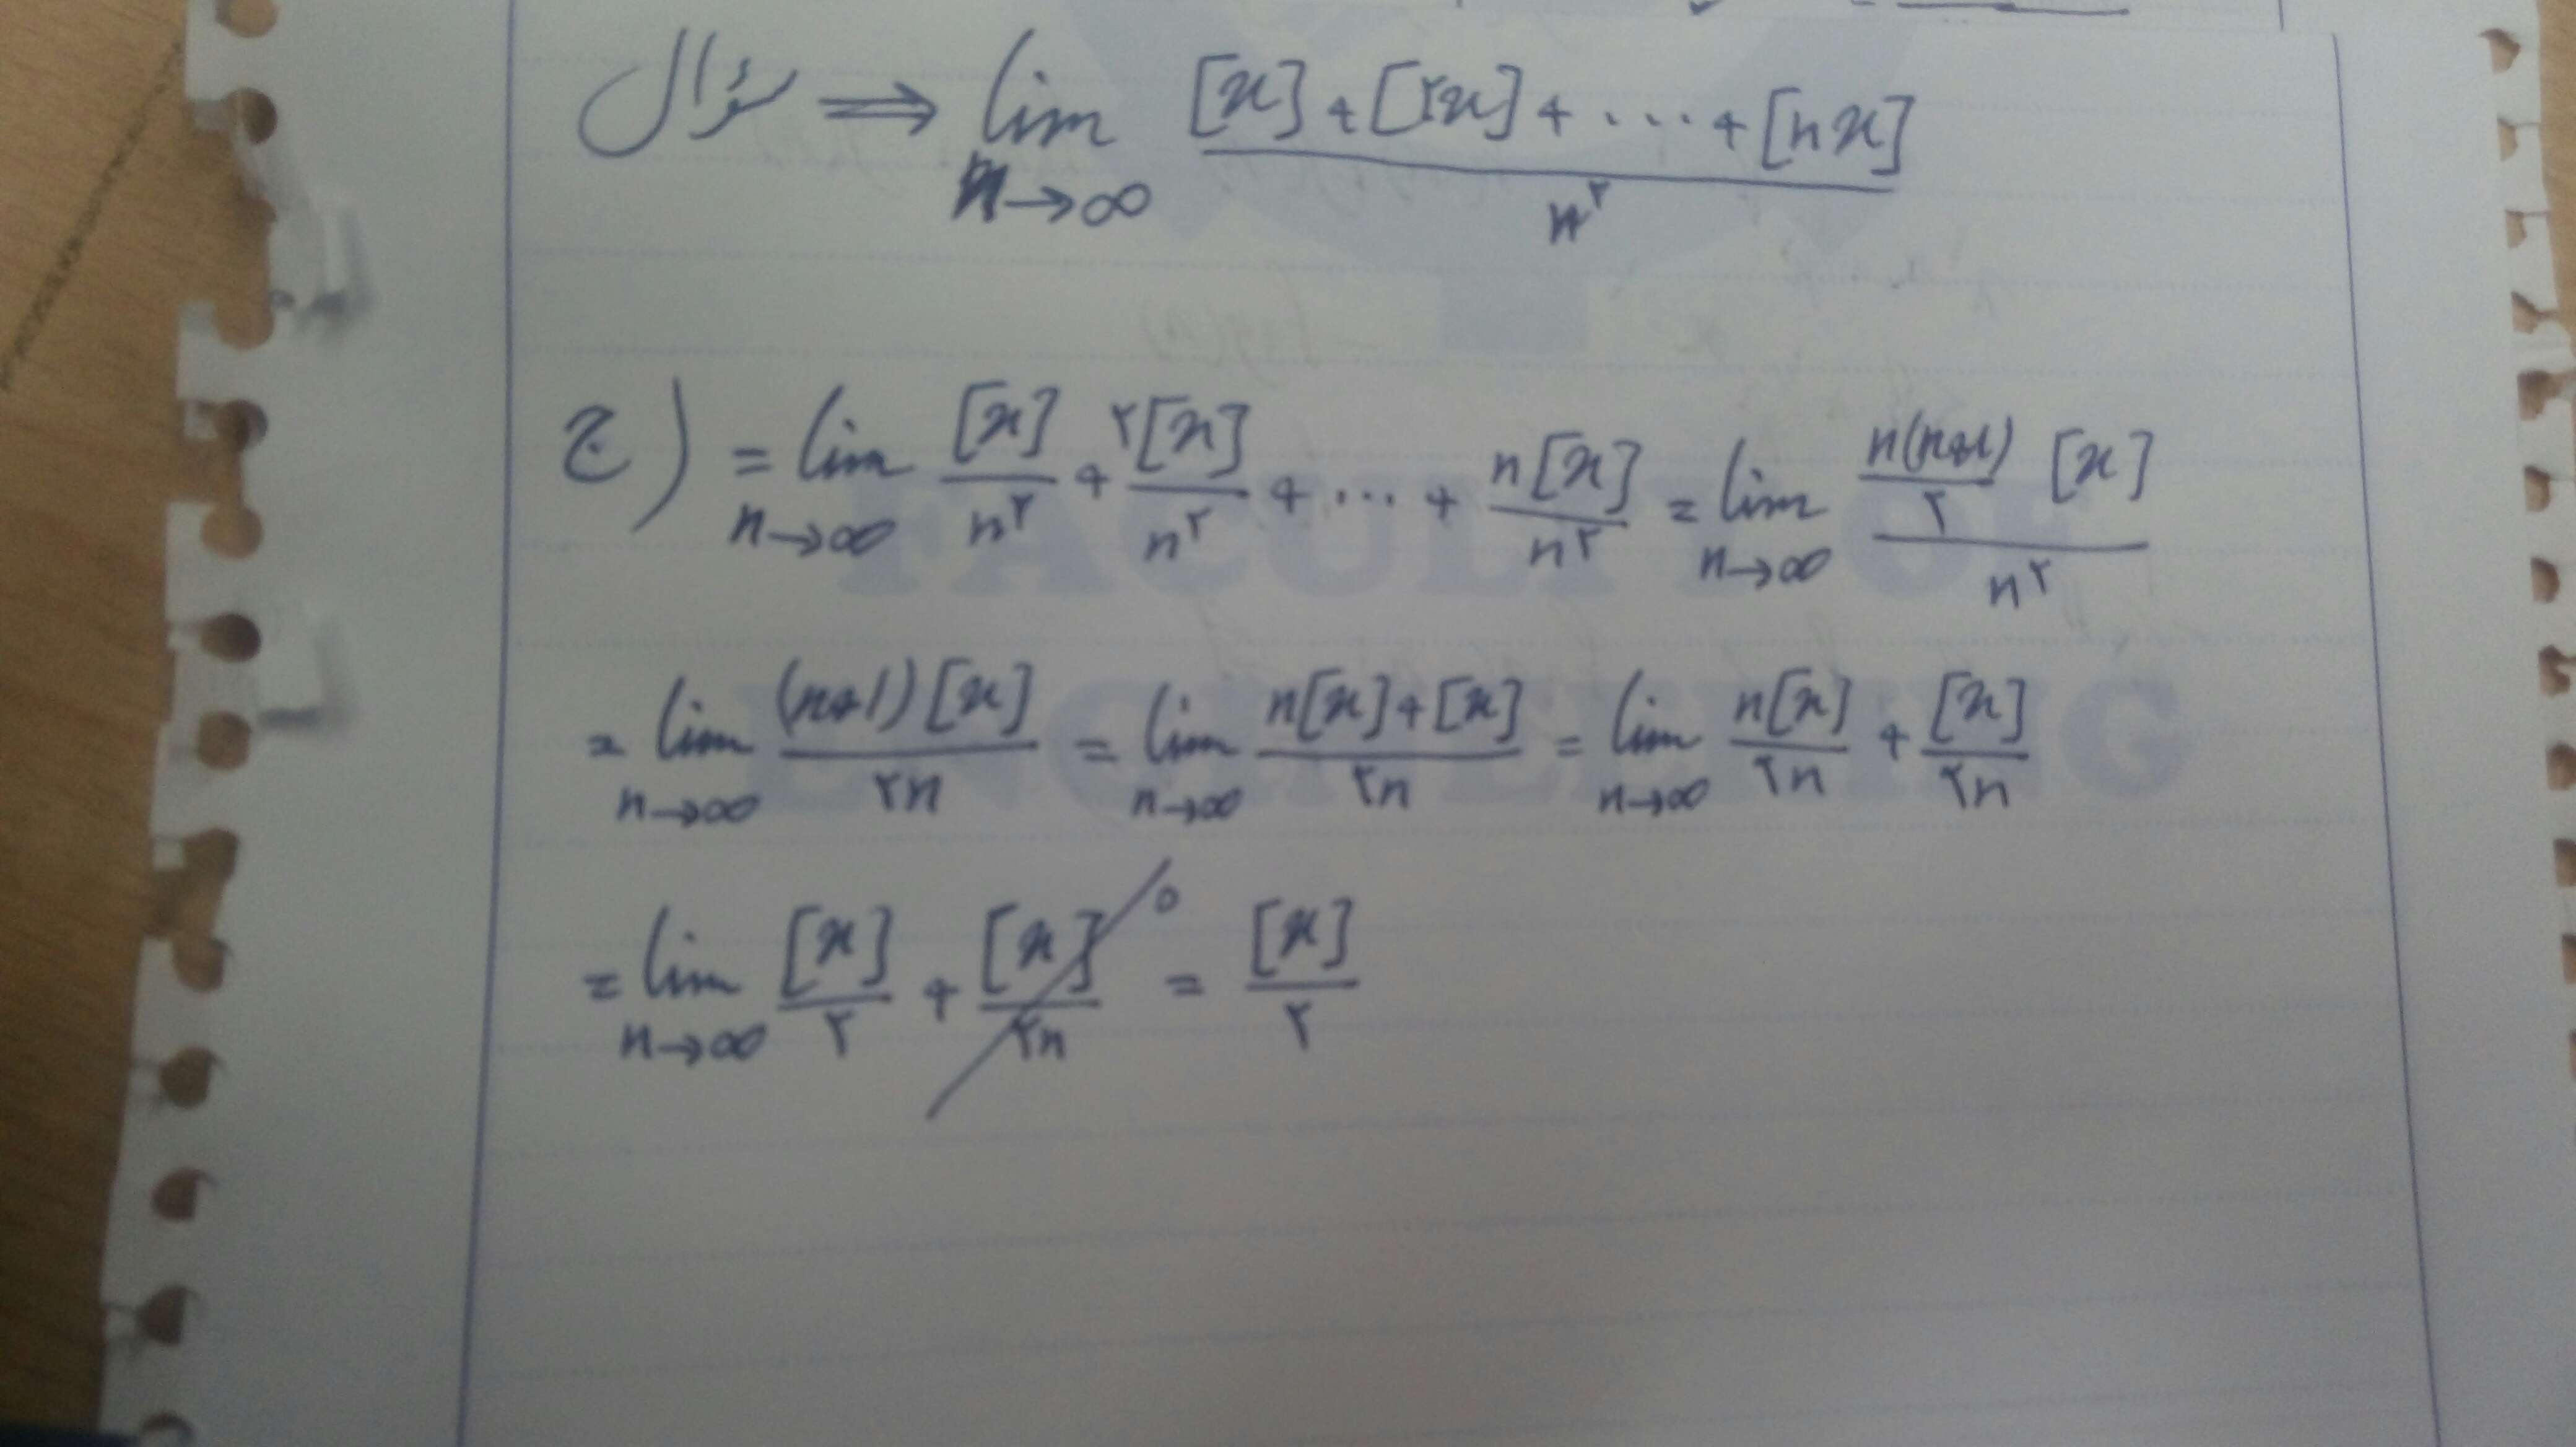 سؤال ⟹ lim n→∞ ([x] + [۲x] + ... + [nx]) / n^۲
ج) = lim n→∞ [x]/n^۲ + ۲[x]/n^۲ + ... + n[x]/n^۲ = lim n→∞ (n(n+1)/۲ [x]) / n^۲
= lim n→∞ (n+1)[x] / ۲n = lim n→∞ (n[x]+[x]) / ۲n = lim n→∞ n[x]/۲n + [x]/۲n
= lim n→∞ [x]/۲ + [x]/۲n 0 = [x]/۲
FACULTY OF
ENGINEERING